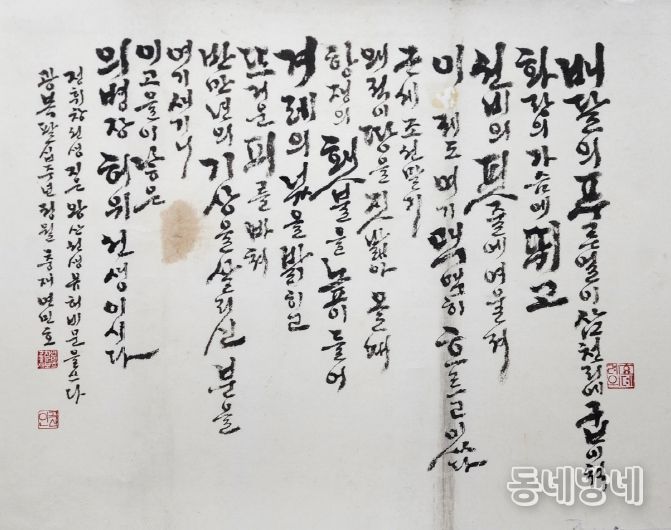 배달의 푸른 얼이 삼천리에 굽이쳐
화랑의 가슴에 뛰고
선비의 핏줄에 여울져
이제도 여기 맥맥히 흐르고 있다
근세 조선 말기
왜적이 땅을 짓밟아 올 때
항쟁의 횃불을 높이 들어
겨레의 넋을 밝히고
뜨거운 피를 바쳐
반만년의 기상을 살리신 분을
여기 새기니
이 고을이 낳은
의병장 허위 선생이시다
정휘창 선생 짓은 왕산 선생 유허비문을 쓰다
광복 팔십주년 정월 변민호
동네방네